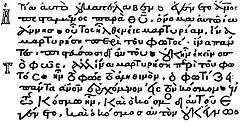 τία αὐτὸ οὐ κατέλαβεν· ἐγένετο ἄνος ἀ
πεσταλμένος παρὰ θυ, ὄνομα αὐτῶ ἰω
άννης· οὗτος ἦλθεν εἰς μαρτυρίαν, ἵνα
μαρτυρήση περὶ τοῦ φωτός· ἵνα πάν
τες πιστεύσωσι δι' αὐτοῦ· οὐκ ἦν ἐκεῖνος
τὸ φῶς, ἀλλ' ἵνα μαρτυρήση περὶ τοῦ φω
τός· ἦν τὸ φῶς τὸ ἀληθινόν· ὃ φωτίζει
πάντα ἄνον ἐρχόμενον εἰς τὸν κόσμον· ἐν
τῶ κόσμω ἦν, καὶ ὁ κόσμος δι' αὐτοῦ ἐγ
ένετο, καὶ ὁ κόσμος αὐτὸν οὐκ ἔγνω